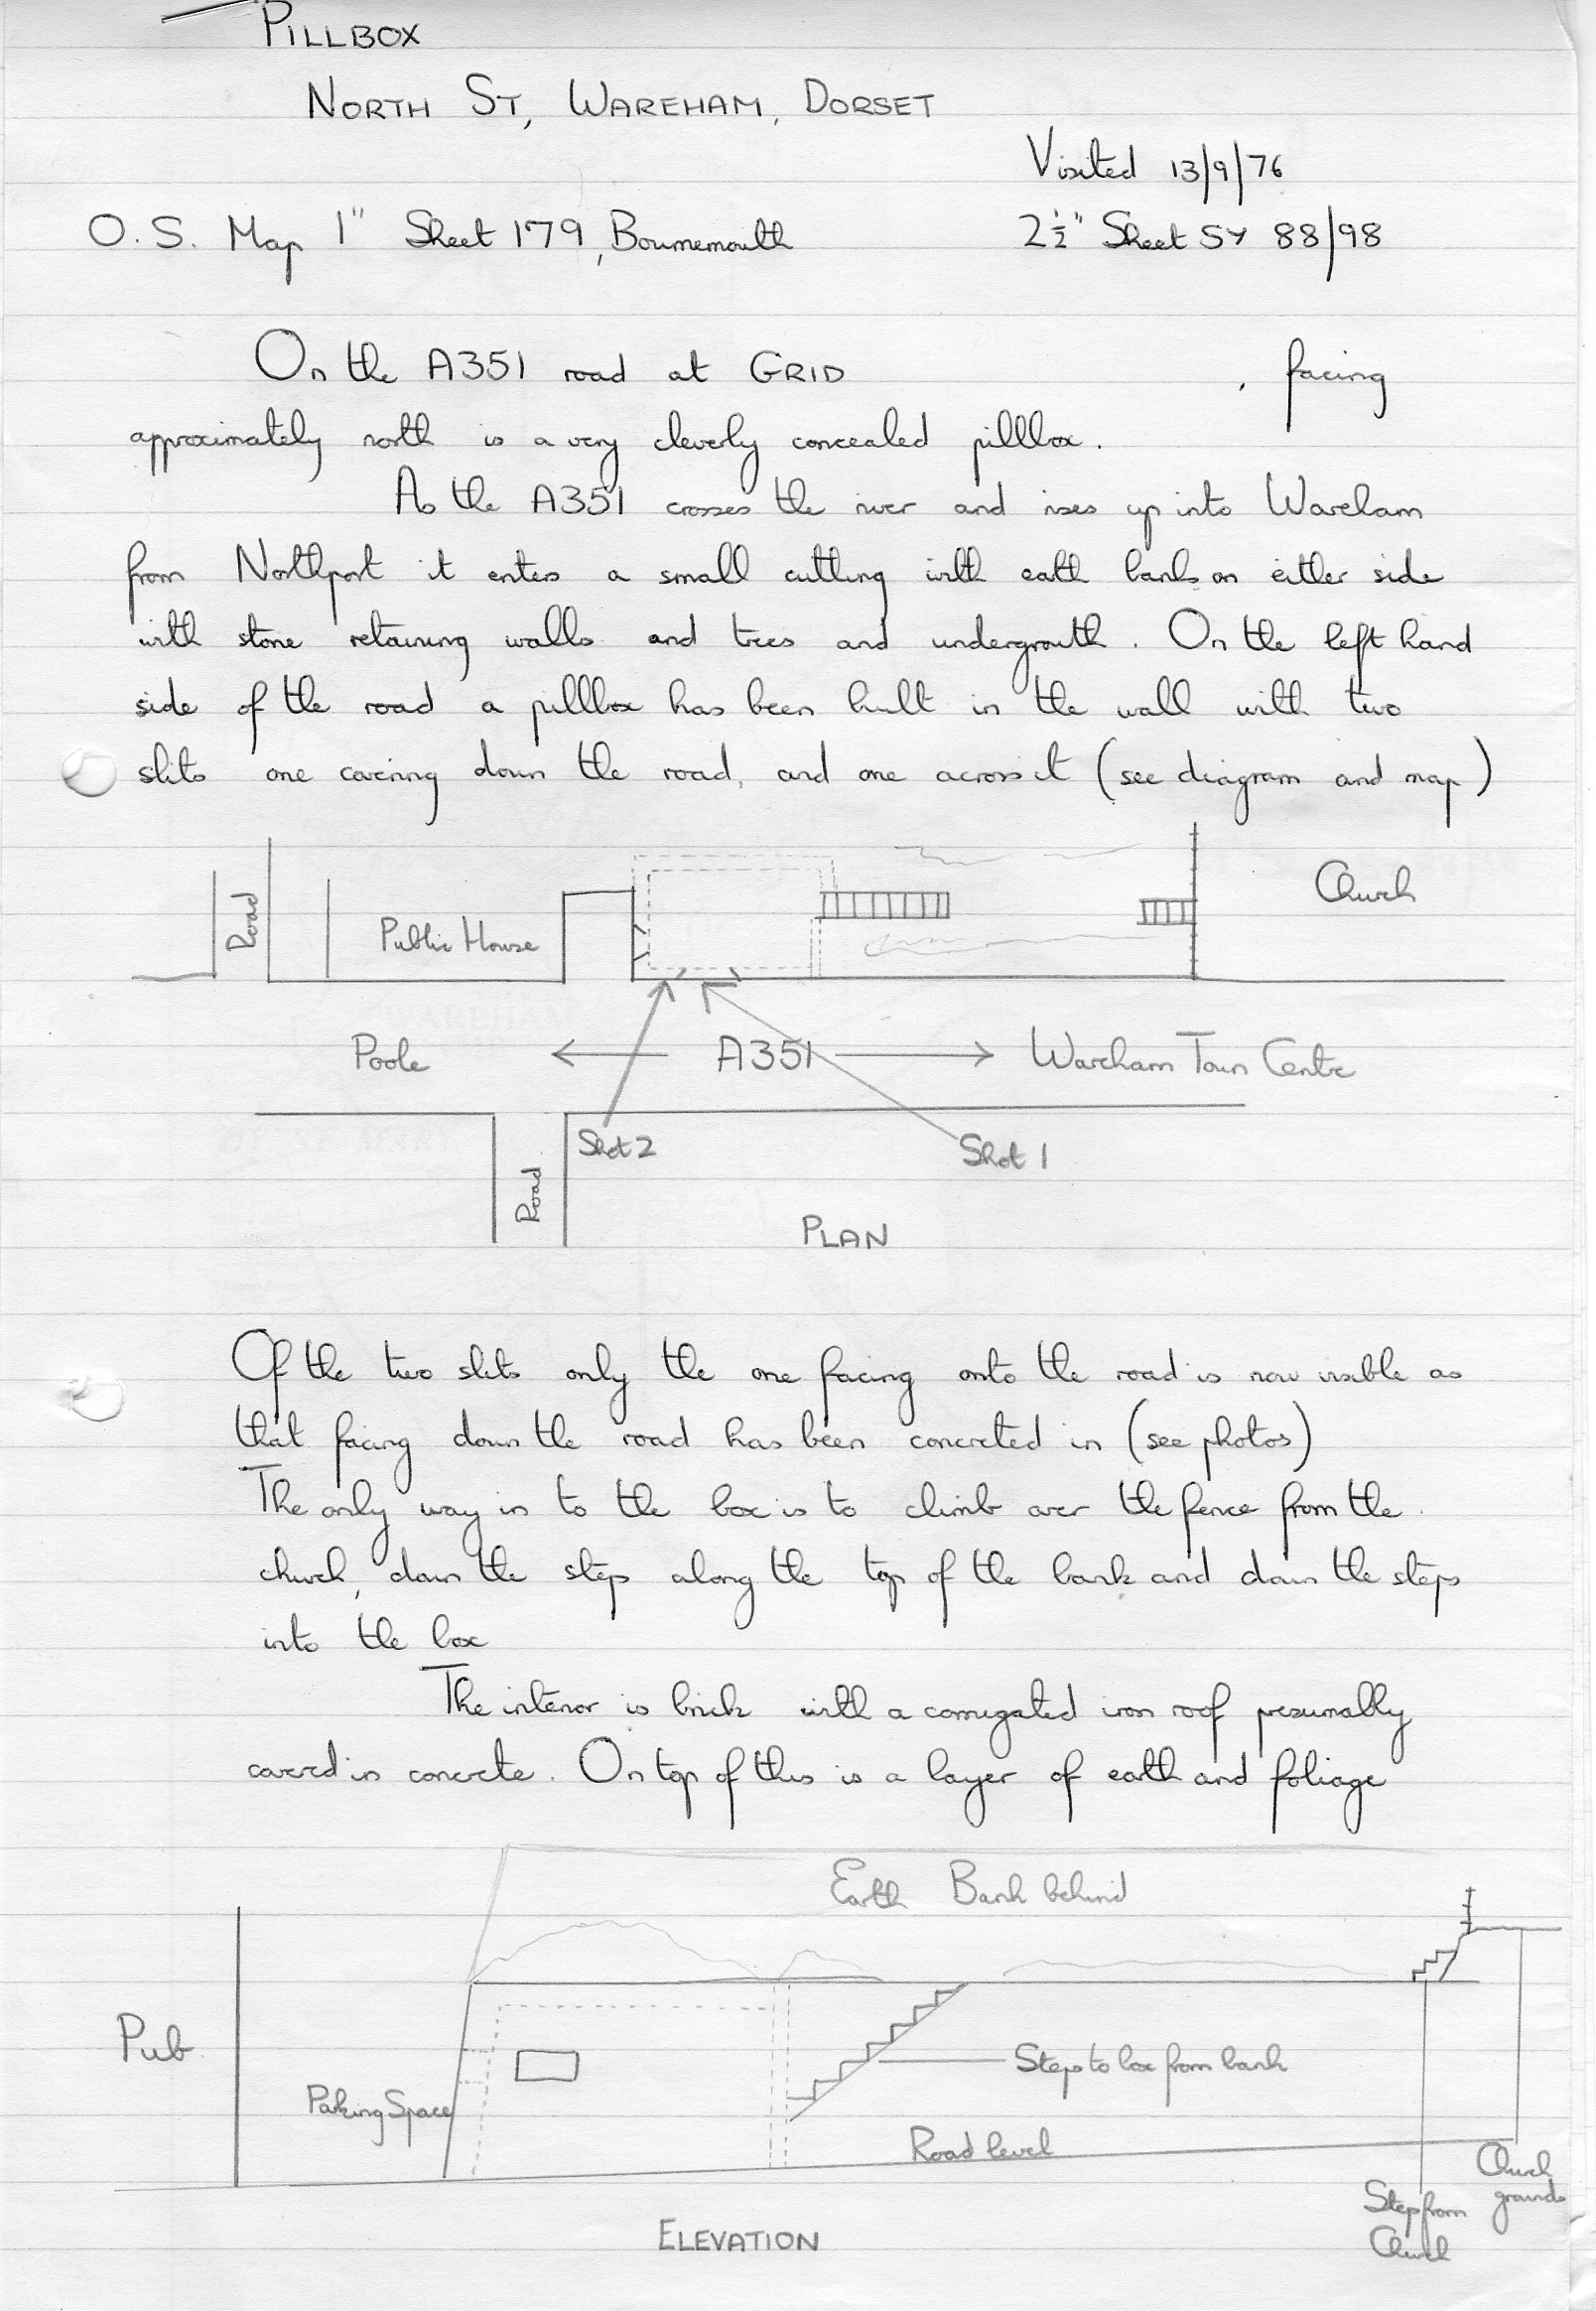 PILLBOX
NORTH ST, WAREHAM, DORSET
Visited 13/9/76
O.S. Map 1" Sheet 179, Bournemouth 2½" Sheet SY 88/98
On the A351 road at GRID , facing
approximately north is a very cleverly concealed pillbox.
As the A351 crosses the river and rises up into Wareham
from Northport it enters a small cutting with earth banks on either side
with stone retaining walls and trees and undergrowth. On the left hand
side of the road a pillbox has been built in the wall with two
slits one covering down the road, and one across it (see diagram and map)
Road
Public House
Church
Poole
A351
Wareham Town Centre
Shot 2
Shot 1
Road
PLAN
Of the two slits only the one facing onto the road is now visible as
that facing down the road has been concreted in (see photos)
The only way in to the box is to climb over the fence from the
church, down the steps along the top of the bank and down the steps
into the box
The interior is brick with a corrugated iron roof presumably
covered in concrete. On top of this is a layer of earth and foliage
Earth Bank behind
Pub
Parking Space
Steps to box from bank
Road level
Church
grounds
Step from
Church
ELEVATION